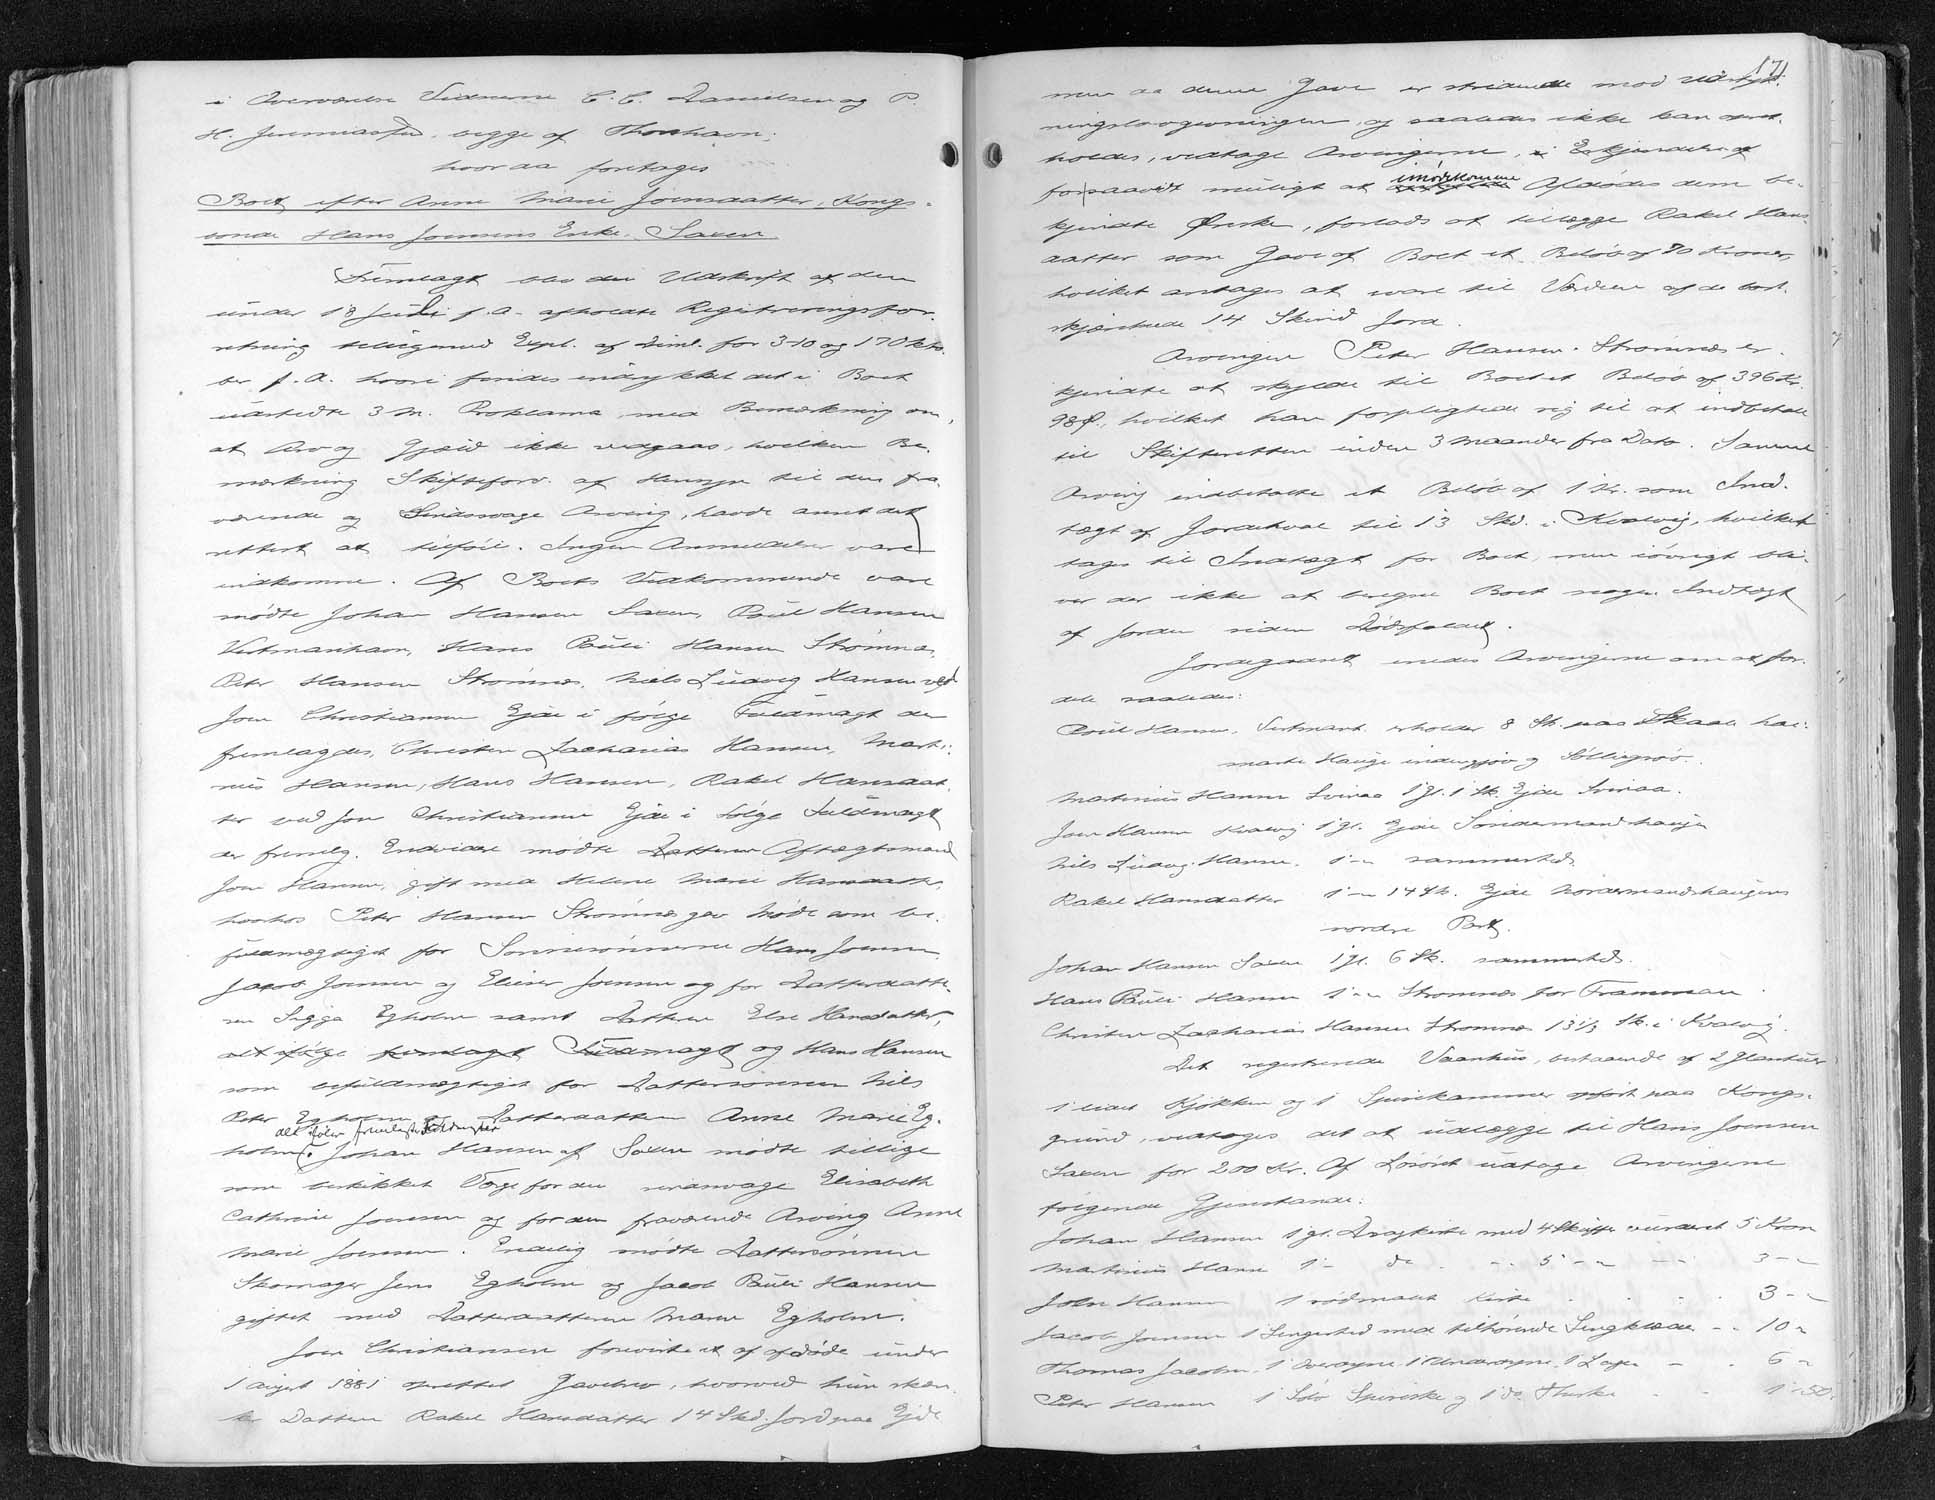 i Overværelse Vidnerne C. C. Danielsen og P.
H. Jeremiassen, begge af Thorshavn;
hvor da foretages
Boet efter Anne Marie Joensdatter, Kongs-
bonde Hans Joensens Enke. Saxen
Fremlagt blev den Udskrift af den
under 18 Juli f. A. afholdte Registreringsfor-
retning tilligemed Expl. af Dimal. for 3-10 og 17 Okto-
ber f. A. hvori findes indrykket det i Boet
udstedte 3 M. Proklama med Bemærkning om,
at Arv og Gjæld ikke vedgaas, hvilken Be-
mærkning Skifteforv. af Hensyn til den fra-
værende og Sindssvage Arving, havde anset det
rettest at tilføie. Ingen Anmeldelser vare
indkomne. Af Boets Vedkommende vare
mødte Johan Hansen Saxen, Poul Hansen
Vestmanhavn, Hans Pauli Hansen Strømnæs,
Peter Hansen Strømnæs, Niels Ludvig Hansen ved
Joen Christiansen Ejde i følge Fuldmagt der
fremlagdes, Christen Zacharias Hansen, Marti-
nus Hansen, Hans Hansen, Rakel Hansdat-
ter ved Joen Christiansen Ejde i følge Fuldmagt
der fremlg. Endvidere mødte Aftægtsmand
Joen Hansen, gift med Helene Marie Hansdatter,
hvorhos Peter Hansen Strømnæs gav Møde som be-
fuldmægtiget for Sønnesønnerne Hans Joensen,
Jacob Joensen og Elieser Joensen og for Datterdatte-
ren Sigga Egholm samt Datteren Else Hansdatter,
alt ifølge fremlagt Fuldmagt og Hans Hansen
som befuldmægtiget for Dattersønnen Niels
Peter Egholm og Datterdatteren Anne Marie Eg-
alt ifølge fremlagte Fuldmagter
holm. Johan Hansen af Saxen mødte tillige
som beskikket Værge for den sindssvage Elisabeth
Cathrine Joensen og for den fraværende Arving Anne
Marie Joensen. Endelig mødte Dattersønnen
Skomager Jens Egholm og Jacob Pauli Hansen
giftet med Datterdatteren Maren Egholm.
Joen Christiansen foreviste et af afdøde under
1 August 1881 oprettet Gavebrev, hvorved hun skjæn-
ker Datteren Rakel Hansdatter 14 Skd. Jord paa Ejde
171
men da denne Gave er stridende mod Udstyk-
ningslovgivningen, og saaledes ikke kan opret-
holdes, vedtage Arvingerne, i Erkjendelse af
imødekomme
forsaavidt muligt at Afdødes dem be-
kjendte Ønske, forlods at tillægge Rakel Hans-
datter som Gave af Boet et Beløb af 70 Kroner,
hvilket antages at svare til Værdien af de bort-
skjænkede 14 Skind Jord.
Arvingen Peter Hansen Strømnæs er-
kjendte at skylde til Boet et Beløb af 396 Kr.
98 Ø., hvilket han forpligtede sig til at indbetale
til Skifteretten inden 3 Maaneder fra Dato. Samme
Arving indbetalte et Beløb af 1 Kr. som Ind-
tægt af til 13 Skd. i Kvalvig, hvilket
tages til Indtægt for Boet, men iøvrigt bli-
ver der ikke at beregne Boet nogen Indtægt
af Jorden siden Dødsfaldet.
Jordegodset enedes Arvingerne om at for-
dele saaledes:
Poul Hansen, Vestmanh. erholder 8 Sk. paa
Hauge og
Martinus Hansen Svinaa 1 Gl. 1 Sk. Ejde Svinaa.
Joen Hansen Kvalvig 1 gl. Ejde Søndermandshauge
Niels Ludvig Hansen. 1 - " sammesteds
Rakel Hansdatter 1 - " 14 Sk. Ejde Nordermandshaugens
nordre Part.
Johan Hansen Saxen 1 gl. 6 Sk. sammesteds.
Hans Pauli Hansen 1 - " Strømnæs for
Christen Zacharias Hansen Strømnæs 13 1/3 Sk. i Kvalvig.
Det registrerede Vaanhus, bestaaende af 2 Glasstuer
1 lidet Kjøkken og 1 Spisekammer opført paa Kongs-
grund, vedtages det at udlægge til Hans Joensen
Saxen for 200 Kr. Af Løsøret udtoge Arvingerne
følgende Gjenstande:
Johan Hansen 1 gl. Dragkiste med 4 Skuffer vurderet 5 Kron
Martinus Hansen 1 - do - - 5 - " - - 3 - "
John Hansen 1 rødmalet Kiste - - - 3 - "
Jacob Joensen 1 Sengested med tilhørende Sengklæder - - 10 "
Thomas Jacobsen 1 Overdyne 1 Underdyne 1 Lagen - - 6 "
Peter Hansen 1 Sølv Spiseske og 1 do. Theske - - 1 - 50